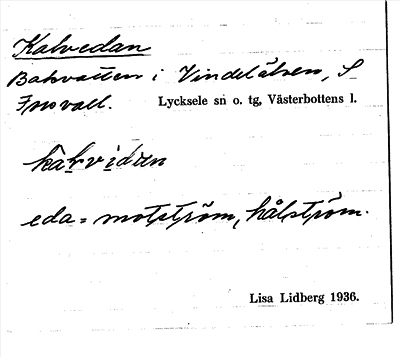 Kalvedan
Bakvatten i Vindelälven, S
Lycksele sn o. tg, Västerbottens l.
eda = motström, hålström.
Lisa Lidberg 1936.